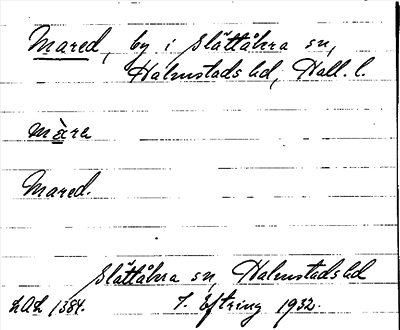 Mared, by i Slättåkra sn,
Halmstads hd, Hall. l.
màra
Mared.
Slättåkra sn, Halmstads hd
1384. T. Eftring 1932.